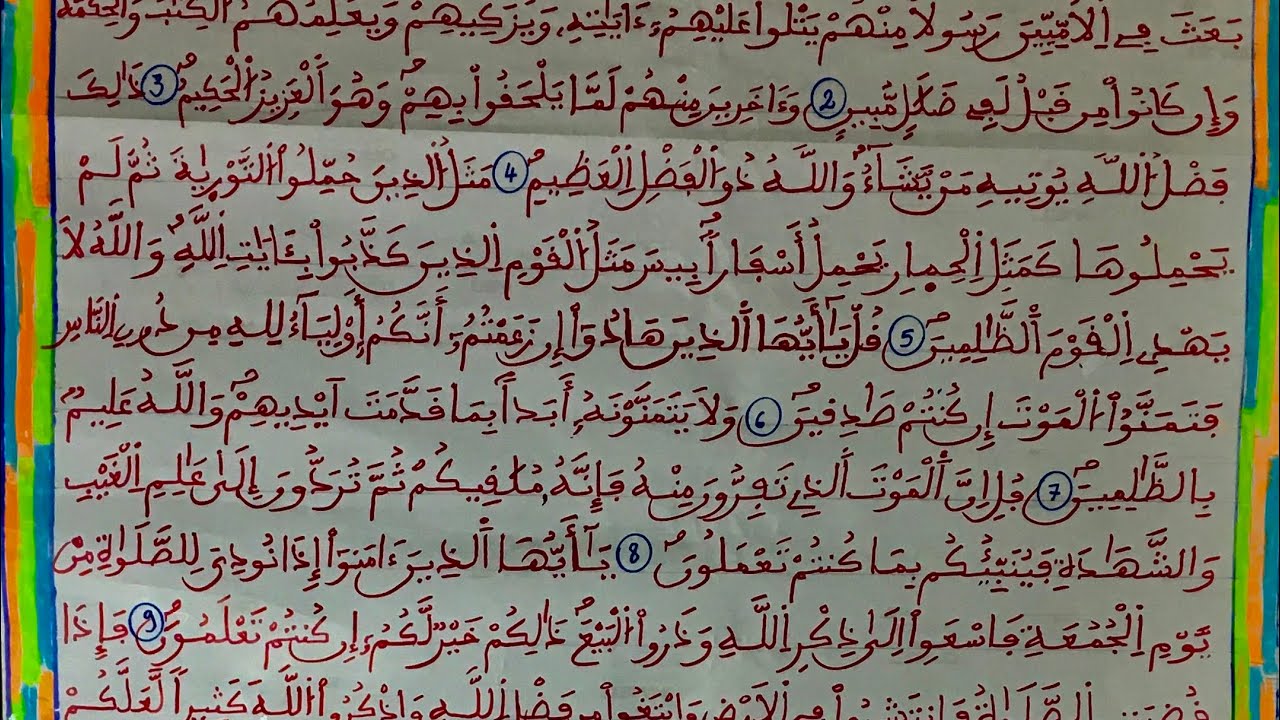 بَعَثَ فِے اِ۬لُامِّيِّـۧنَ رَسُولاٗ مِّنْهُمْ يَتْلُواْ عَلَيْهِمُۥٓ ءَايَٰتِهِۦ وَيُزَكِّيهِمْ وَيُعَلِّمُهُمُ اُ۬لْكِتَٰبَ وَالْحِكْمَةَ
وَإِن كَانُواْ مِن قَبْلُ لَفِے ضَلَٰلٖ مُّبِينٖ 2 وَءَاخَرِينَ مِنْهُمْ لَمَّا يَلْحَقُواْ بِهِمْۖ وَهُوَ اَ۬لْعَزِيزُ اُ۬لْحَكِيمُۖ 3 ذَٰلِكَ
فَضْلُ اُ۬للَّهِ يُوتِيهِ مَنْ يَّشَآءُۖ وَاللَّهُ ذُو اُ۬لْفَضْلِ اِ۬لْعَظِيمِۖ 4 مَثَلُ اُ۬لذِينَ حُمِّلُواْ اُ۬لتَّوْر۪يٰةَ ثُمَّ لَمْ
يَحْمِلُوهَا كَمَثَلِ اِ۬لْحِم۪ارِ يَحْمِلُ أَسْفَاراَۢۖ بِيسَ مَثَلُ اُ۬لْقَوْمِ اِ۬لذِينَ كَذَّبُواْ بِـَٔايَٰتِ اِ۬للَّهِۖ وَاللَّهُ لَا
يَهْدِے اِ۬لْقَوْمَ اَ۬لظَّٰلِمِينَۖ 5 قُلْ يَٰٓأَيُّهَا اَ۬لذِينَ هَادُوٓاْ إِن زَعَمْتُمُۥٓ أَنَّكُمُۥٓ أَوْلِيَآءُ لِلهِ مِن دُونِ اِ۬لنَّاسِ
فَتَمَنَّوُاْ اُ۬لْمَوْتَ إِن كُنتُمْ صَٰدِقِينَۖ 6 وَلَا يَتَمَنَّوْنَهُۥٓ أَبَداَۢ بِمَا قَدَّمَتَ اَيْدِيهِمْۖ وَاللَّهُ عَلِيمُۢ
بِالظَّٰلِمِينَۖ 7 قُلِ اِنَّ اَ۬لْمَوْتَ اَ۬لذِے تَفِرُّونَ مِنْهُ فَإِنَّهُۥ مُلَٰقِيكُمْ ثُمَّ تُرَدُّونَ إِلَىٰ عَٰلِمِ اِ۬لْغَيْبِ
وَالشَّهَٰدَةِ فَيُنَبِّئُكُم بِمَا كُنتُمْ تَعْمَلُونَۖ 8 يَٰٓأَيُّهَا اَ۬لذِينَ ءَامَنُوٓاْ إِذَا نُودِىَ لِلصَّلَوٰةِ مِنْ
يَّوْمِ اِ۬لْجُمُعَةِ فَاسْعَوِاْ اِلَىٰ ذِكْرِ اِ۬للَّهِ وَذَرُواْ اُ۬لْبَيْعَۖ ذَٰلِكُمْ خَيْرٞ لَّكُمُۥٓ إِن كُنتُمْ تَعْلَمُونَۖ 9 فَإِذَا
قُضِيَتِ اِ۬لصَّلَوٰةُ فَانتَشِرُواْ فِے اِ۬لَارْضِ وَابْتَغُواْ مِن فَضْلِ اِ۬للَّهِ وَاذْكُرُواْ اُ۬للَّهَ كَثِيراٗ لَّعَلَّكُمْ